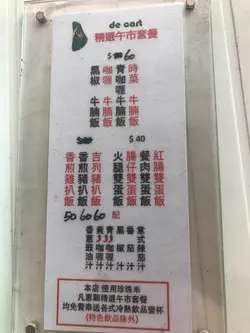 de cart
精選午市套餐
$60
黑椒牛腩飯
咖喱牛腩飯
青咖喱牛腩飯
時菜牛腩飯
$40
香煎雞扒飯
香煎豬扒飯
吉列豬扒飯
火腿雙蛋飯
腸仔雙蛋飯
餐肉雙蛋飯
紅腸雙蛋飯
50 60 60
配
香蔥豉油汁
黑椒汁
番茄汁
本店使用珍珠米
凡惠顧精選午市套餐
均免費奉送各式冷熱飲品壹杯
(特色飲品除外)